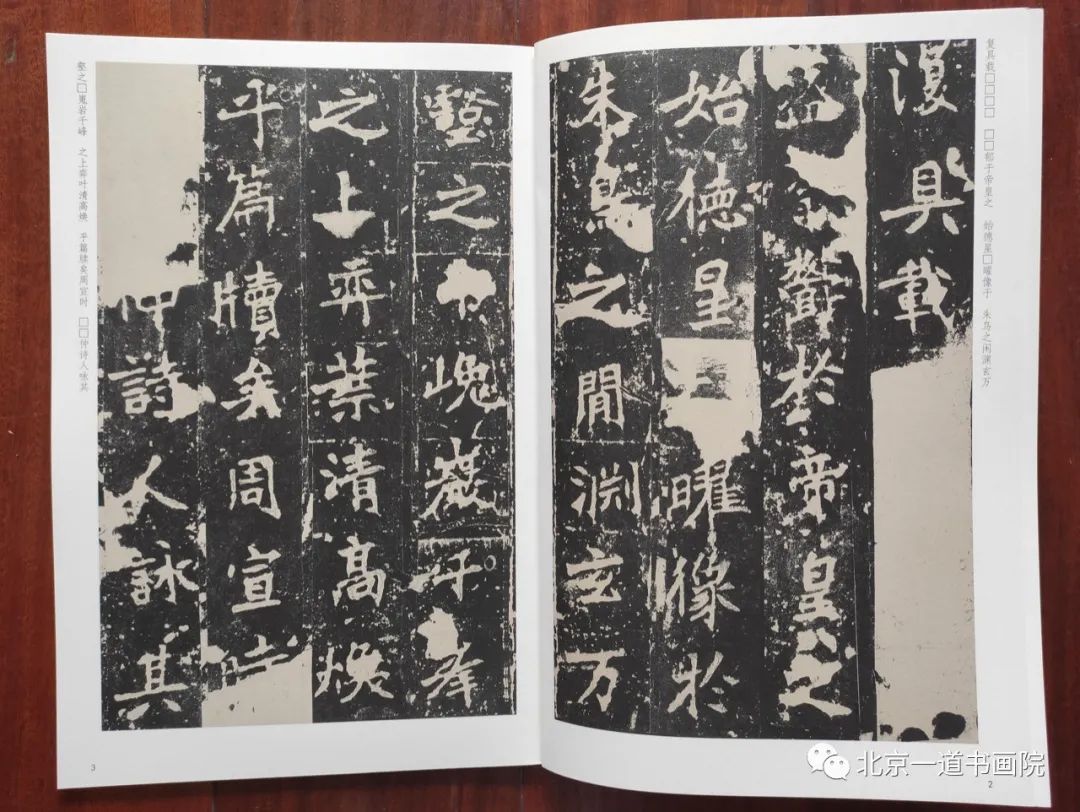 复具载□□□□　□□郁于帝皇之　始德星□曜像于　朱鸟之闲渊玄万
復具載
鬱於帝皇之
始德星曜像於
朱鳥之閒渊玄万
2
壑之嵬巖千峯
之上弈葉清高煥
乎篇牘矣周宣時
仲詩人詠其
壑之□嵬岩千峰　之上弈叶清高焕　乎篇牍矣周宣时　□□仲诗人咏其
3
北京一道书画院